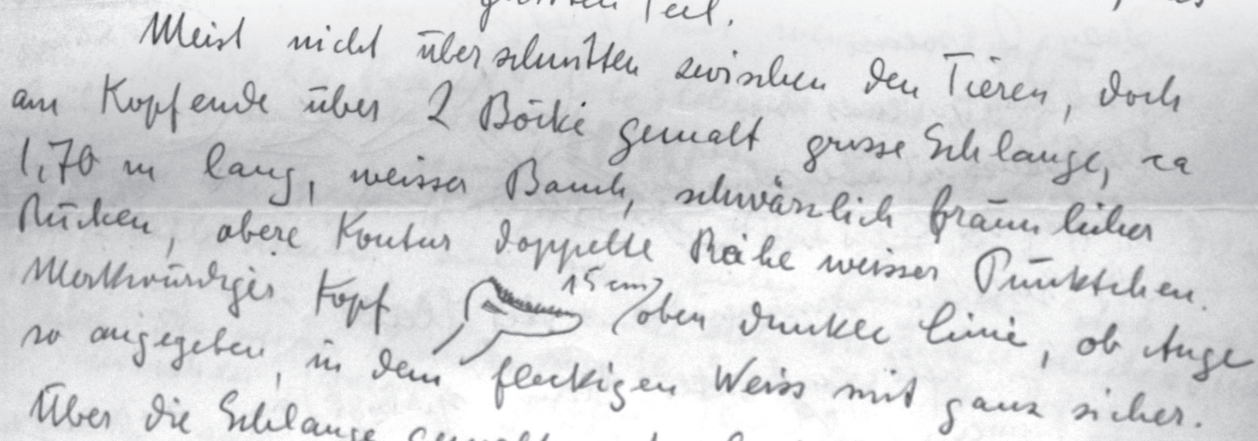 Teil.
Meist nicht überschnitten zwischen den Tieren, doch
am Kopfende über 2 Böcke gemalt grosse Schlange, ca
1,70 m lang, weisser Bauch, schwärzlich bräunlicher
Rücken, obere Kontur doppelte Reihe weisser Pünktchen.
Merkwürdiger Kopf 15 cm oben dunkle Linie, ob Auge
so angegeben, in dem fleckigen Weiss mit ganz sicher.
Über die Schlange